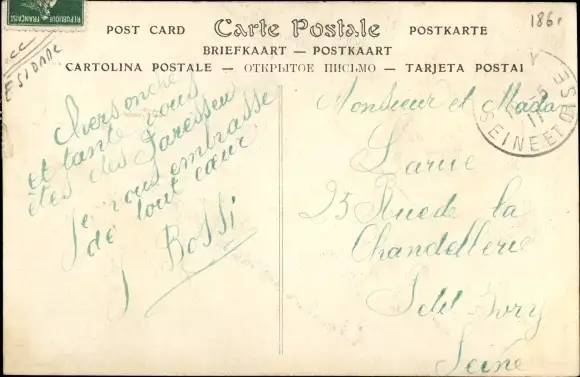 REPUBLIQUE FRANÇAISE
1861
POST CARD Carte Postale POSTKARTE
BRIEFKAART — POSTKAART
CARTOLINA POSTALE — ОТКРЫТОЕ ПИСЬМО — TARJETA POSTAL
Chers oncle
et tante vous
êtes des Paresseu
Je vous embrasse
de tout cœur
J Bossi
SEINE ET OISE
11
Monsieur et Mada
Larue
25 Rue de la
Chandellerie
Ivry
Seine